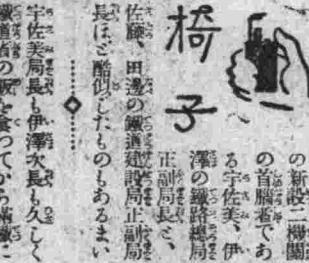 椅子
の新設二機關
の首腦者であ
る宇佐美、伊
澤の鐵路總局
正副局長と、
佐藤、田邊の鐵道建設局正副局
長ほど酷似したものもあるまい
宇佐美局長も伊澤次長も久しく
鐵道省の飯を食つてから滿鐵に